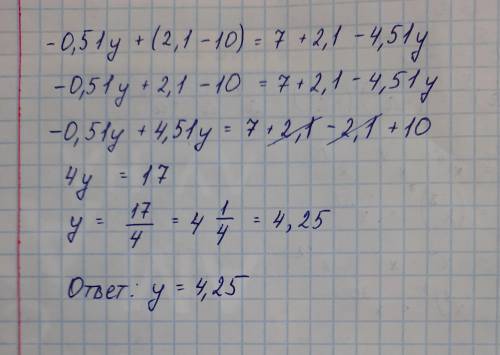 -0,51y + (2,1 - 10) = 7 + 2,1 - 4,51y
-0,51y + 2,1 - 10 = 7 + 2,1 - 4,51y
-0,51y + 4,51y = 7 + 2,1 - 2,1 + 10
4y = 17
y = 17/4 = 4 1/4 = 4,25
Ответ: y = 4,25